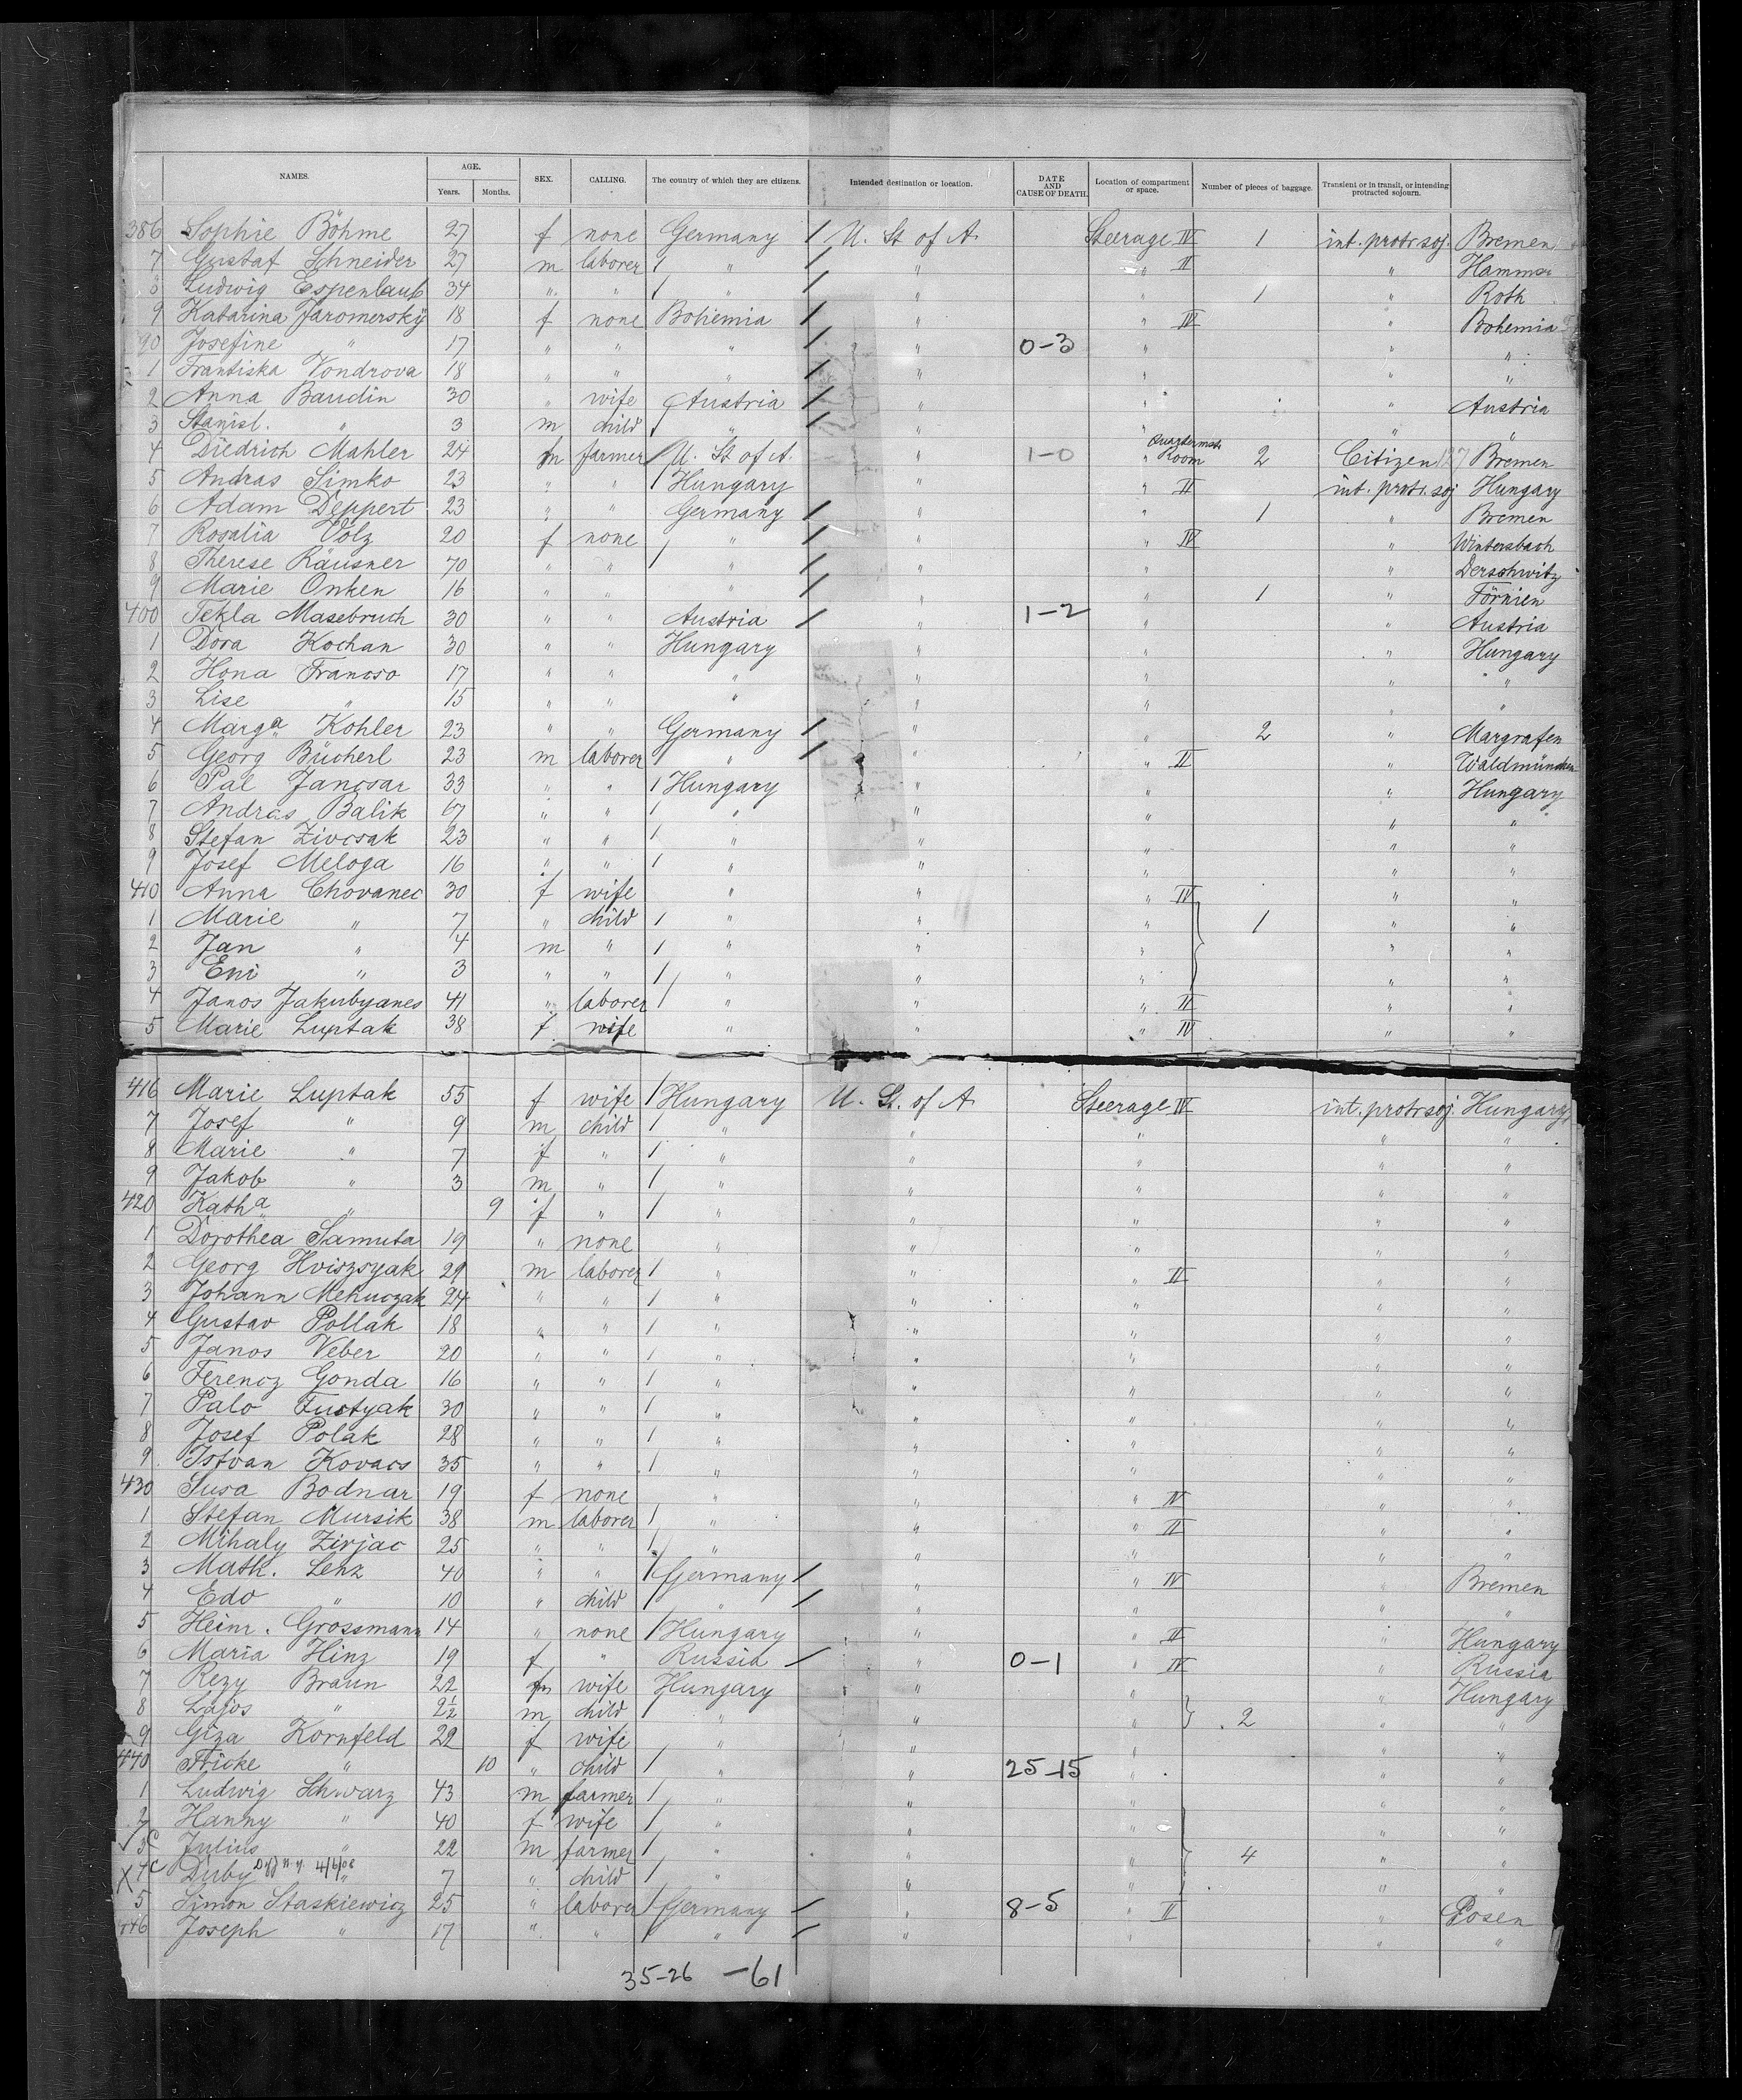 NAMES. AGE. Years. Months. SEX. CALLING. The country of which they are citizens. Intended destination or location. DATE AND CAUSE OF DEATH. Location of compartment or space. Number of pieces of baggage. Transient or in transit, or intending protracted sojourn.
386 Sophie Böhme 27 f none Germany / U. St of A. Steerage IV 1 int. protr. soj. Bremen
7 Gustaf Schneider 27 m laborer / " / " " II "
8 Ludwig Espenlaub 34 " " / " / " " 1 " Roth
9 Katarina Jaromersky 18 f none Bohemia / " " IV " Bohemia
90 Josefine " 17 " " " / " 0-3 " " "
1 Frantiska Vondrova 18 " " " / " " " "
2 Anna Baudin 30 " wife Austria / " " " Austria
3 Stanisl. " 3 m child " / " " " "
4 Diedrich Mahler 24 m farmer / U. St of A. " 1-0 " Room 2 Citizen 127 Bremen
5 Andras Simko 23 " " / Hungary " " II int. protr. soj Hungary
6 Adam Deppert 23 " " Germany / " " 1 " Bremen
7 Rosalia Volz 20 f none / " / " " IV " Wintersbach
8 Therese Räusner 70 " " / " / " " " Derschwitz
9 Marie Onken 16 " " " / " " 1 "
400 Tekla Masebruch 30 " " Austria / " 1-2 " " Austria
1 Dora Kochan 30 " " Hungary " " " Hungary
2 Hona Francso 17 " " " " " " "
3 Lise " 15 " " " " " " "
4 Marga Kohler 23 " " Germany / " " 2 " Margrafen
5 Georg Bücherl 23 m laborer / " / " " II " Waldmünchen
6 Pal Jancsar 33 " " / Hungary " " " Hungary
7 Andras Balik 67 " " / " " " " "
8 Stefan Zivcsak 23 " " / " " " " "
9 Josef Meloga 16 " " / " " " " "
410 Anna Chovanec 30 f wife " " " IV " "
1 Marie " 7 " child / " " " 1 " "
2 Jan " 4 m " / " " " " "
3 Eni " 3 " " / " " " " "
4 Janos Jakubyanes 41 " laborer / " " " II " "
5 Marie Luptak 38 f wife " " " IV " "
416 Marie Luptak 55 f wife / Hungary U. St. of A Steerage IV int. protr soj. Hungary
7 Josef " 9 m child / " " " " "
8 Marie " 7 f " / " " " " "
9 Jakob " 3 m " / " " " " "
420 Katha " 9 f " / " " " " "
1 Dorothea Samuta 19 " none " " " " "
2 Georg Hviszsyak 29 m laborer / " " " II " "
3 Johann Mehuczak 24 " " / " " " " "
4 Gustav Pollak 18 " " / " " " " "
5 Janos Veber 20 " " / " " " " "
6 Ferencz Gonda 16 " " / " " " " "
7 Palo Fustyak 30 " " / " " " " "
8 Josef Polak 28 " " / " " " " "
9 Istvan Kovacs 35 " " / " " " " "
430 Susa Bodnar 19 f none " " " IV " "
1 Stefan Mursik 38 m laborer / " " " II " "
2 Mihaly Zirjac 25 " " / " " " " "
3 Math. Lenz 40 " " / Germany / " " IV " Bremen
4 Edo " 10 " child " / " " " "
5 Heinr. Grossmann 14 " none / Hungary " " II " Hungary
6 Maria Hinz 19 f " Russia / " 0-1 " IV " Russia
7 Rezy Braun 22 f wife Hungary " " " Hungary
8 Lajos " 2½ m child " " " 2 " "
9 Giza Kornfeld 22 f wife " " " " "
440 Fricke " 10 " child / " " 25-15 " " "
1 Ludwig Schwarz 43 m farmer / " " " " "
2 Hanny " 40 f wife / " " " " "
3 c Julius " 22 m farmer / " " " 4 " "
X 4 c Duby " 4/6/08 7 " child / " " " " "
5 Simon Staskiewicz 25 " laborer / Germany / " 8-5 " II " Posen
446 Joseph " 17 " " " / " " " "
35-26 -61